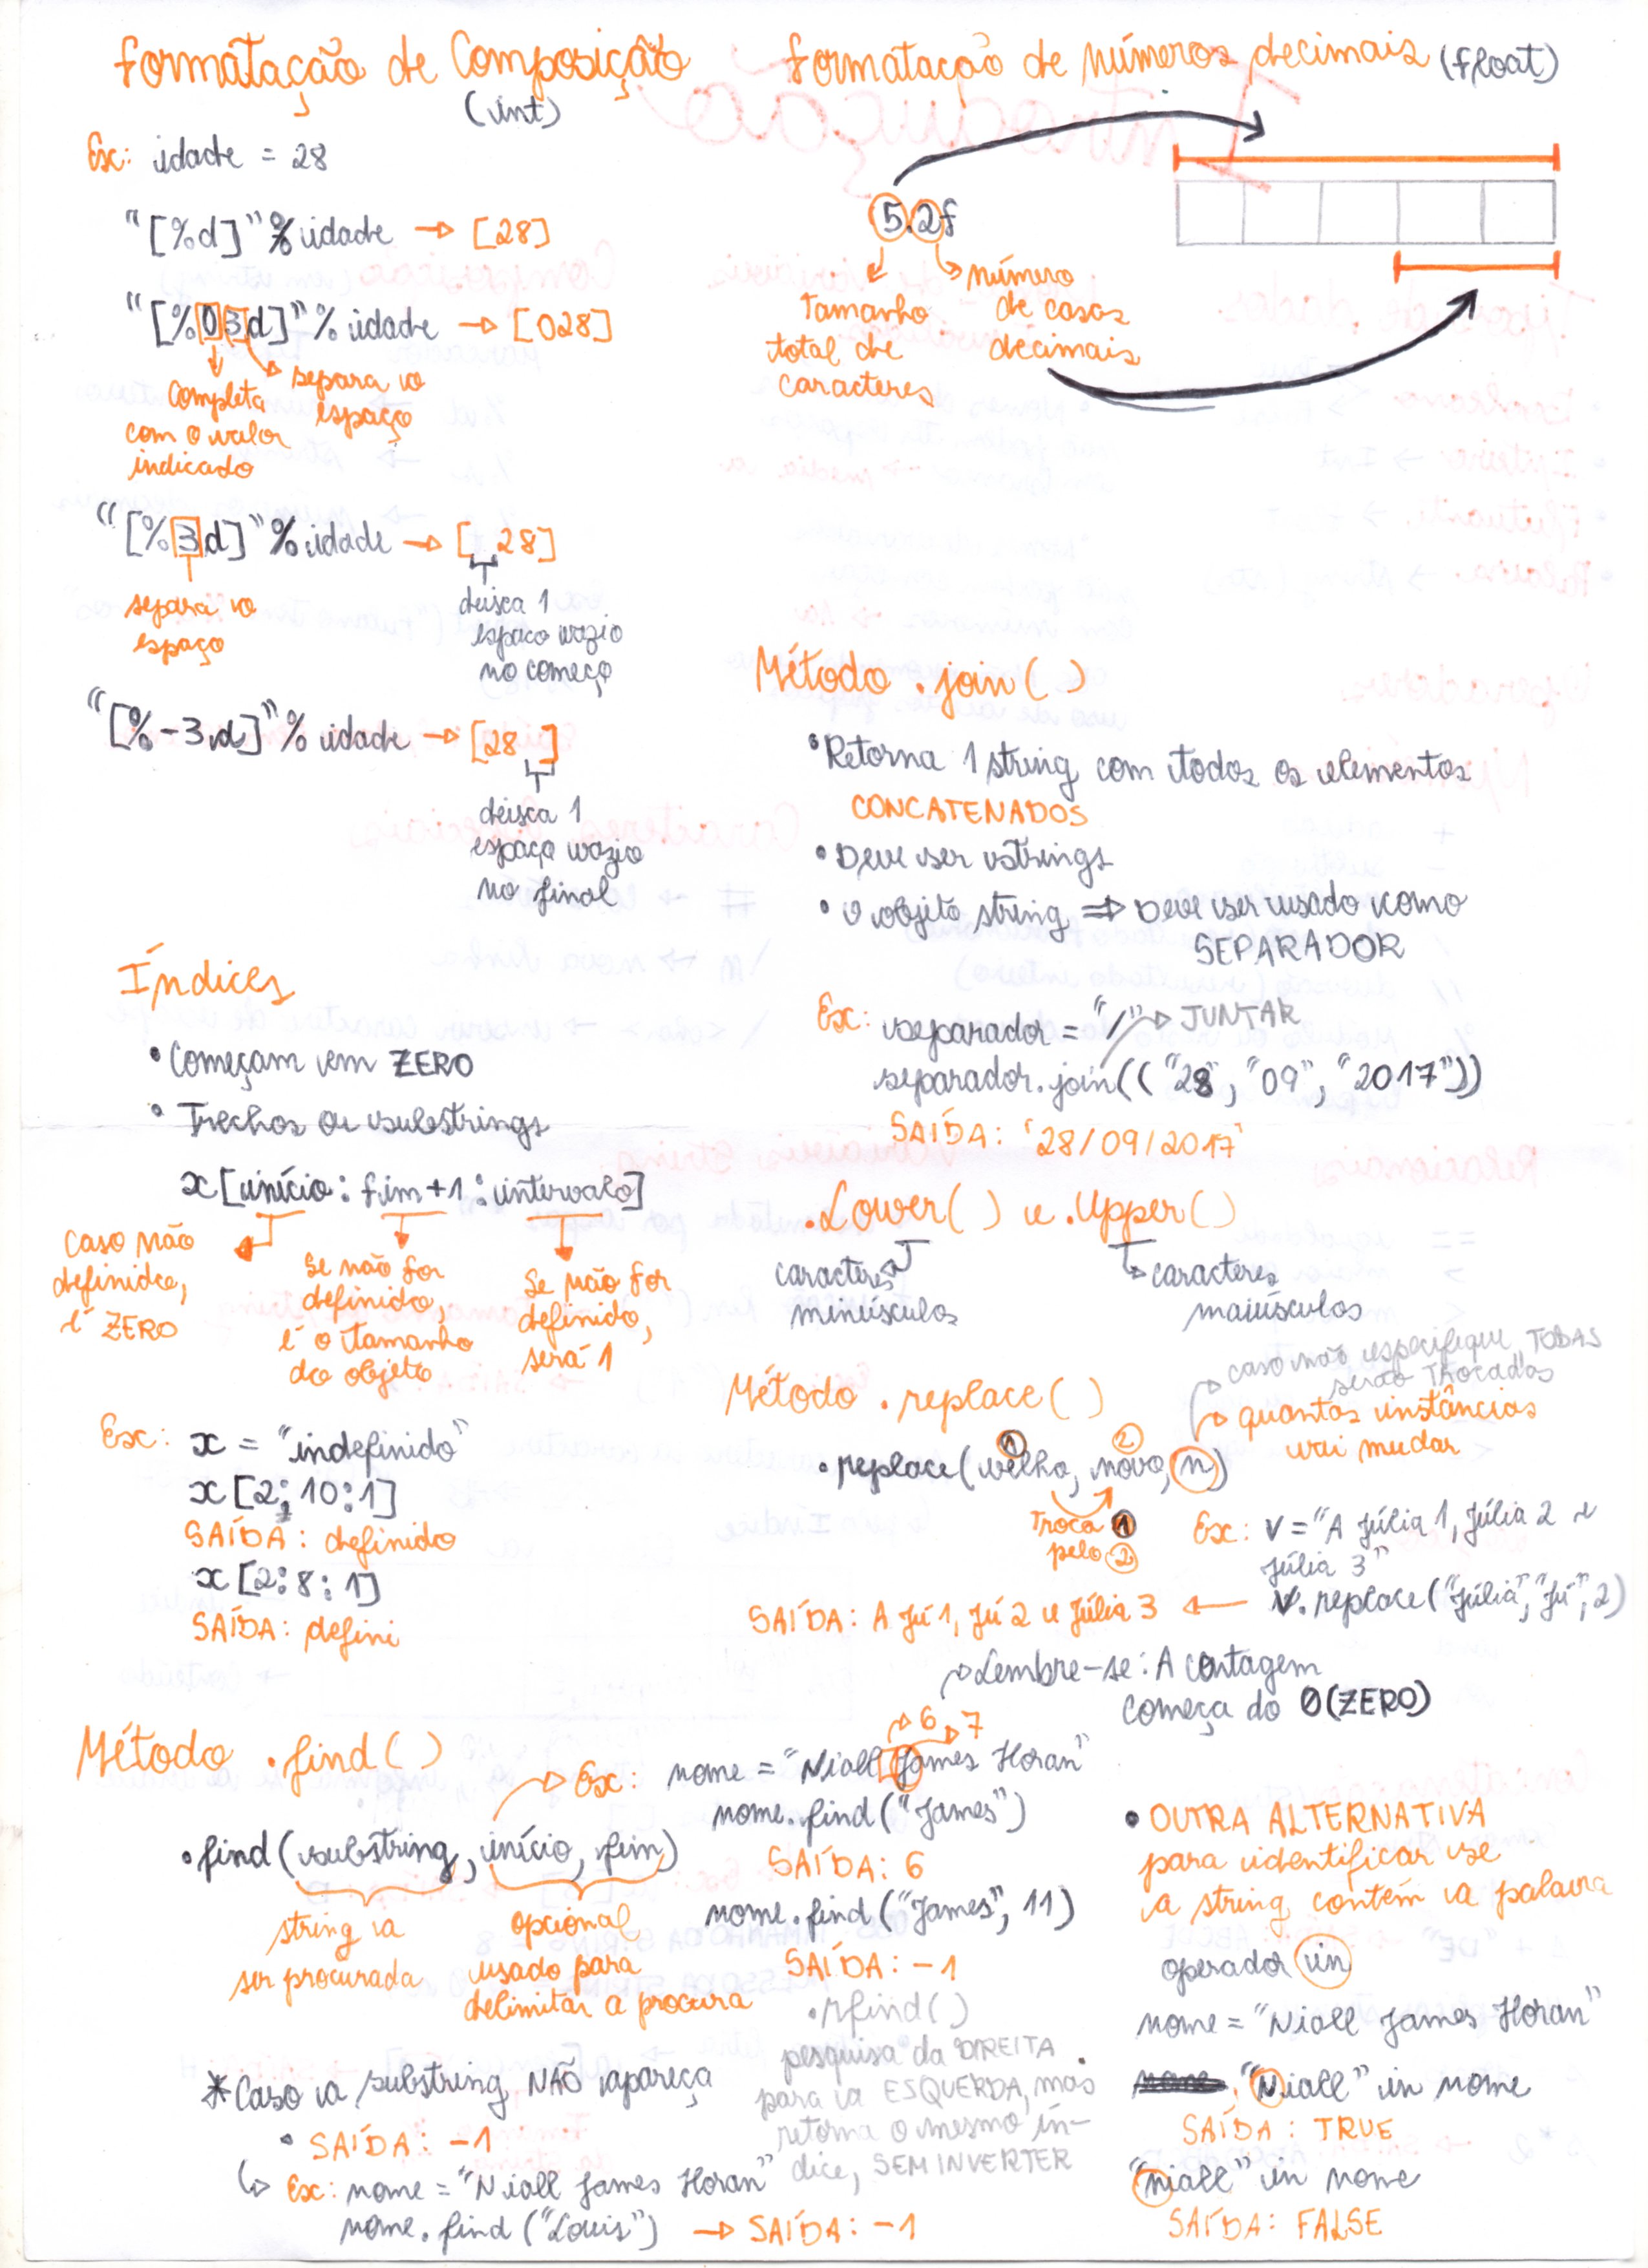 Formatação de Composição
(int)
Ex: idade = 28
"[%d]" % idade → [28]
"[%03d]" % idade → [028]
Completa
com o valor
indicado
separa o
espaço
"[%3d]" % idade → [ 28]
separa o
espaço
deixa 1
espaço vazio
no começo
"[%-3d]" % idade → [28 ]
deixa 1
espaço vazio
no final
Formatação de números decimais (float)
5.2f
Tamanho
total de
caracteres
número
de casas
decimais
Índices
• Começam em ZERO
• Trechos ou substrings
x[início : fim+1 : intervalo]
Caso não
definido,
é ZERO
Se não for
definido,
é o tamanho
do objeto
Se não for
definido,
será 1
Ex: x = "indefinido"
x[2:10:1]
SAÍDA: definido
x[2:8:1]
SAÍDA: defini
Método .join()
• Retorna 1 string com todos os elementos
CONCATENADOS
• Deve ser strings
• O objeto string ⇒ Deve ser usado como
SEPARADOR
Ex: separador = "/" → JUNTAR
separador.join(("28", "09", "2017"))
SAÍDA: '28/09/2017'
.Lower() e .Upper()
caracteres
minúsculos
caracteres
maiúsculos
Método .replace()
caso não especifique, TODAS
serão trocadas
quantas instâncias
vai mudar
.replace(velho, novo, n)
1
2
Troca 1
pelo 2
Ex: v = "A Júlia 1, Júlia 2 e
Júlia 3"
v.replace("Júlia", "Jú", 2)
SAÍDA: A Jú 1, Jú 2 e Júlia 3 ←
Lembre-se: A contagem
começa do 0 (ZERO)
Método .find()
.find(substring, início, fim)
string a
ser procurada
opcional
usado para
delimitar a procura
→ 6 → 7
Ex: nome = "Niall James Horan"
nome.find("James")
SAÍDA: 6
nome.find("James", 11)
SAÍDA: -1
.rfind()
pesquisa da DIREITA
para a ESQUERDA, mas
retorna o mesmo ín-
dice, SEM INVERTER
* Caso a substring NÃO apareça
• SAÍDA: -1
Ex: nome = "Niall James Horan"
nome.find("Louis") → SAÍDA: -1
• OUTRA ALTERNATIVA
para identificar se
a string contém a palavra
operador in
nome = "Niall James Horan"
"Niall" in nome
SAÍDA: TRUE
"niall" in nome
SAÍDA: FALSE